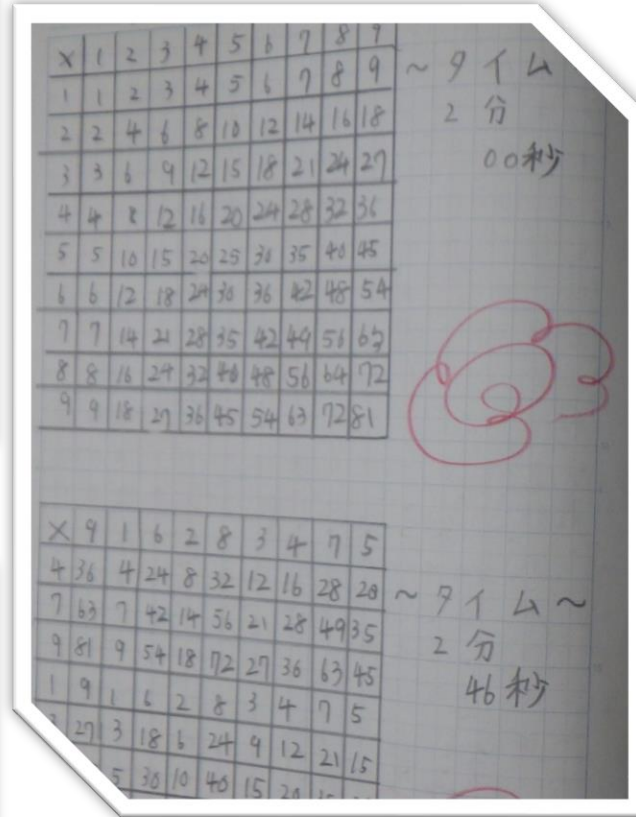 × 1 2 3 4 5 6 7 8 9
1 1 2 3 4 5 6 7 8 9
2 2 4 6 8 10 12 14 16 18
3 3 6 9 12 15 18 21 24 27
4 4 8 12 16 20 24 28 32 36
5 5 10 15 20 25 30 35 40 45
6 6 12 18 24 30 36 42 48 54
7 7 14 21 28 35 42 49 56 63
8 8 16 24 32 40 48 56 64 72
9 9 18 27 36 45 54 63 72 81
~タイム
2分
00秒
× 9 1 6 2 8 3 4 7 5
4 36 4 24 8 32 12 16 28 20
7 63 7 42 14 56 21 28 49 35
9 81 9 54 18 72 27 36 63 45
1 9 1 6 2 8 3 4 7 5
27 3 18 6 24 9 12 21 15
5 30 10 40 15 20
~タイム~
2分
46秒